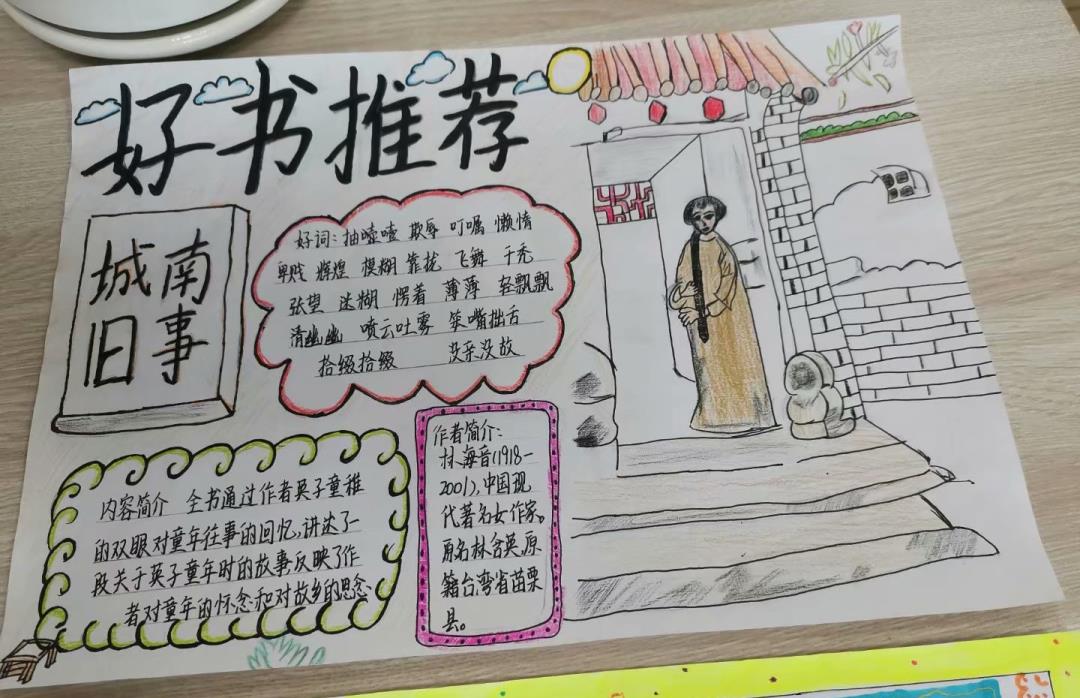 好书推荐
城南
旧事
好词：抽噎噎 欺辱 叮嘱 懒惰
卑贱 辉煌 模糊 靠拢 飞舞 干秃
张望 迷糊 愣着 薄薄 轻飘飘
清幽幽 喷云吐雾 笨嘴拙舌
拾缀拾缀 没亲没故
内容简介 全书通过作者英子童稚
的双眼对童年往事的回忆，讲述了一
段关于英子童年时的故事反映了作
者对童年的怀念和对故乡的思念
作者简介：
林海音(1918-
2001)，中国现
代著名女作家。
原名林含英，原
籍台湾省苗栗
县。